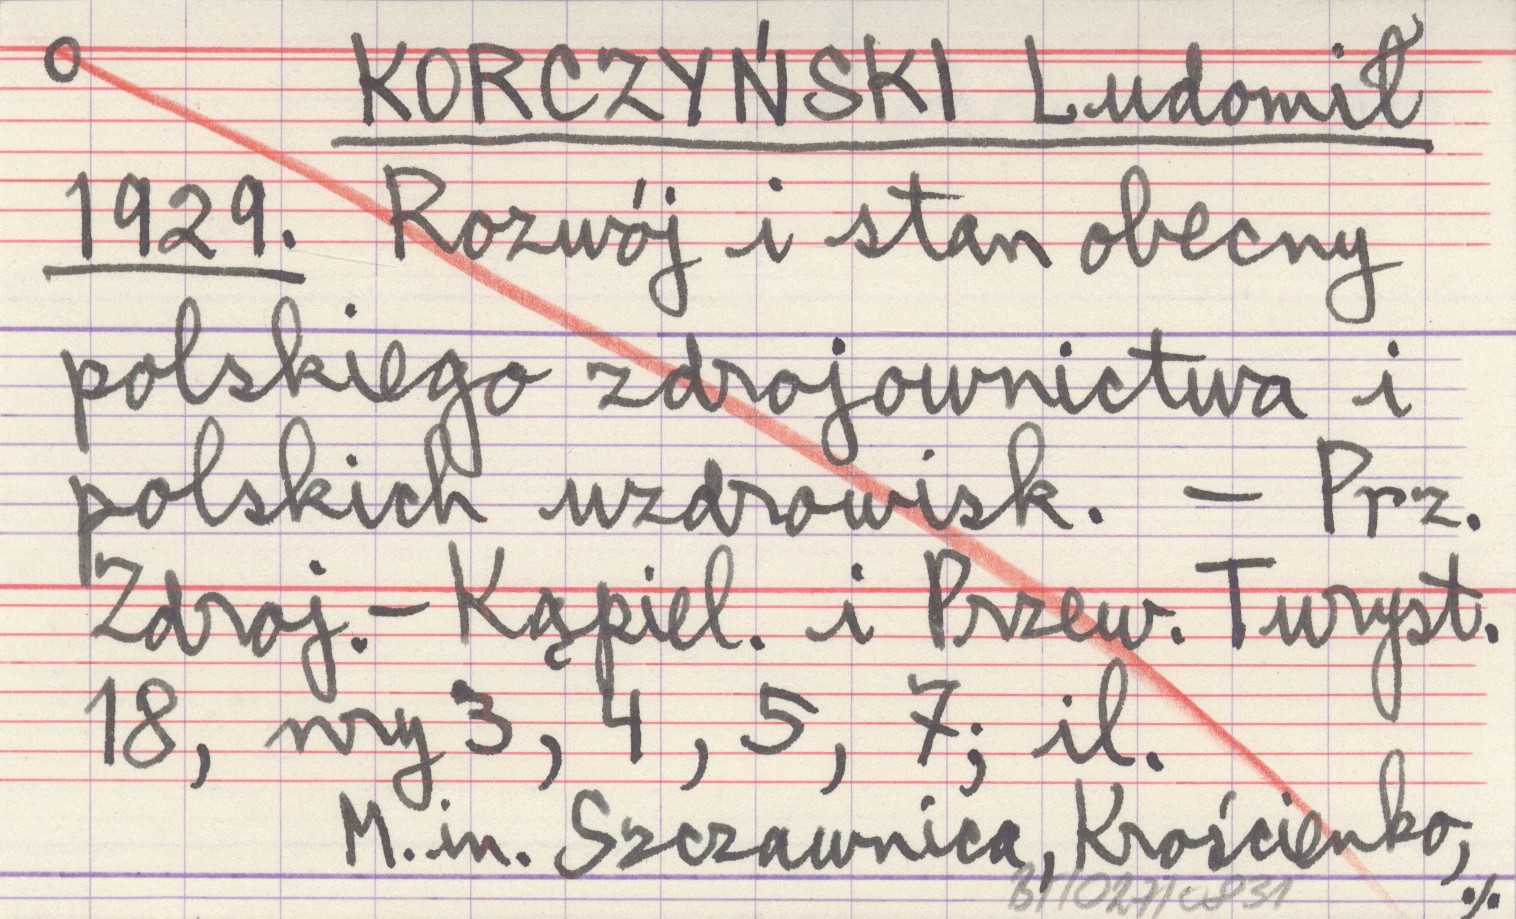 KORCZYŃSKI Ludomił
1929. Rozwój i stan obecny
polskiego zdrojownictwa i
polskich uzdrowisk. – Prz.
Zdroj.-Kąpiel. i Przew. Turyst.
18, nry 3, 4, 5, 7; il.
M. in. Szczawnica, Krościenko,
·/·